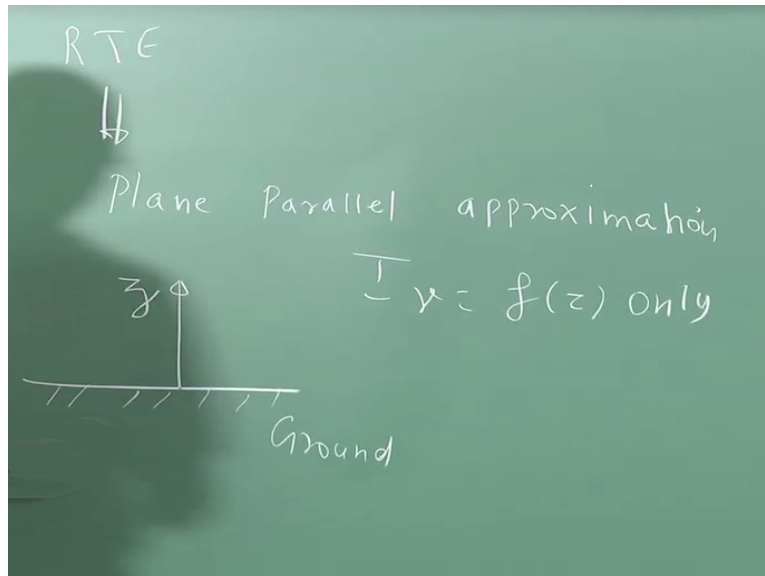 RTE
Plane Parallel approximation
z
Iν = f(z) only
Ground